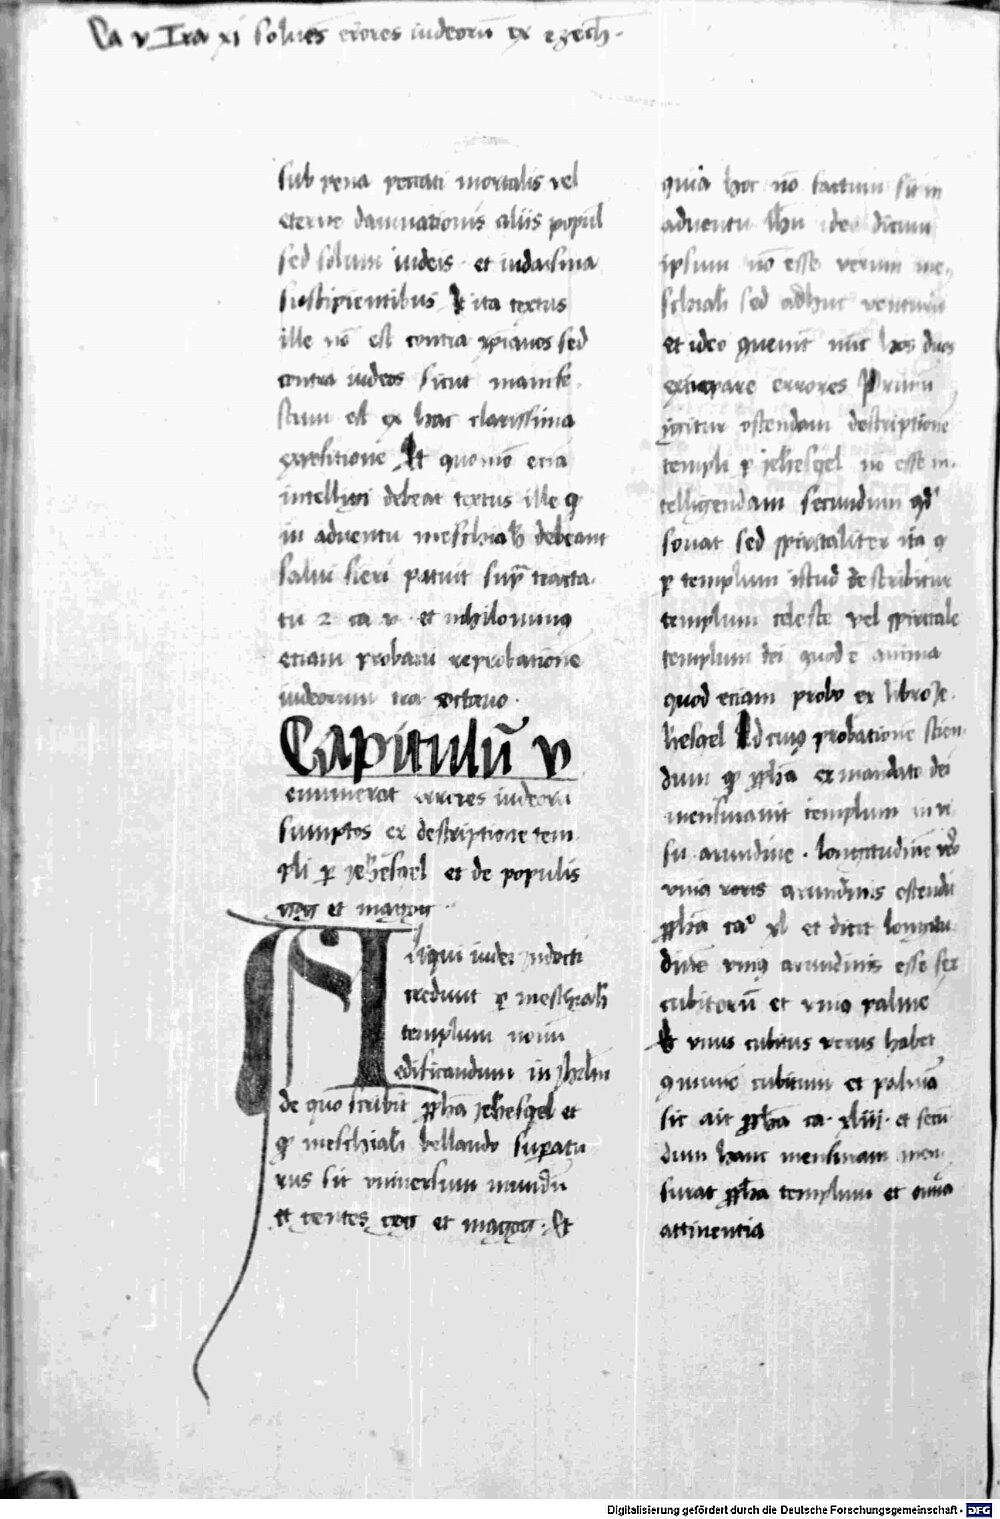 Ca v Tra xi soluēs erores iudeorū ex ezech̄.
sub pena peccati mortalis vel
eterne damnationis aliis popul
sed solum iudeis et iudaisma
suscipientibus Et ita textus
ille nō est contra xp̄ianos sed
contra iudeos sicut manife-
stum est ex hac clarissima
expositione Et quomō etiā
intelligi debeat textus ille qꝫ
in aduentu meschiah debeant
salui fieri patuit supͣ tracta-
tu 2 ca v et nihilominꝰ
etiam probatū reprobatione
iudeorum tra octauo.
Capitulū v
enumerat errores iudeorū
sumptos ex descriptione tem
pli ꝑ jeh̄esqel et de populis
gog et magog
Aliqui iudei indocti
credunt ꝙ meschiah
templum nouū
edificandum in jhrlm
de quo scribit ꝓph̄a jeh̄esqel et
qꝫ meschiah bellando supatu
rus sit vniuersum mundū
et gentes gog et magog. Et
quia hoc nō factum sit in
aduentu jh̄u ideo dicunt
ipsum nō esse verum me-
schiah sed adhuc venturū
et ideo quenit nūc hos duos
extirpare errores Primū
igitur ostendam descriptionē
templi ꝑ jeh̄esqel nō esse in-
telligendam secundum qd̓
sonat sed spiritaliter ita ꝙ
ꝑ templum istud describitur
templum celeste vel spiritale
templum dei quod ē anima
quod etiam probo ex libro Je-
h̄esqel Ad cuiꝰ probationē scien-
dum qꝫ ꝓph̄a ex mandato dei
mensurauit templum in vi
su arundine. longitudinē v̓o
vniꝰ toris arundinis ostendit
ꝓph̄a caᵒ xl et dicit longitu-
dinē vniꝰ arundinis esse sex
cubitorū et vniꝰ palme
Et vnus cubitus verus habet
cubitum et palmā
sic ait ꝓph̄a ca. xliii. et secū
dum hanc mensuram men-
surat ꝓph̄a templum et oīa
attinentia
Digitalisierung gefördert durch die Deutsche Forschungsgemeinschaft - DFG